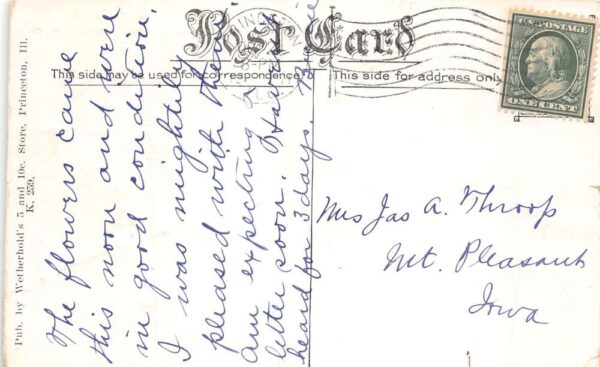 Post Card
This side may be used for correspondence
This side for address only
U.S. POSTAGE
ONE CENT
Pub. by Wetherhold's 5 and 10c. Store, Princeton, Ill.
K. 259.
The flowers came
this noon and were
in good condition.
I was mightily
pleased with them
am expecting a
letter soon. Haven't
heard for 3 days.
Mrs Jas A. Throop
Mt. Pleasant
Iowa